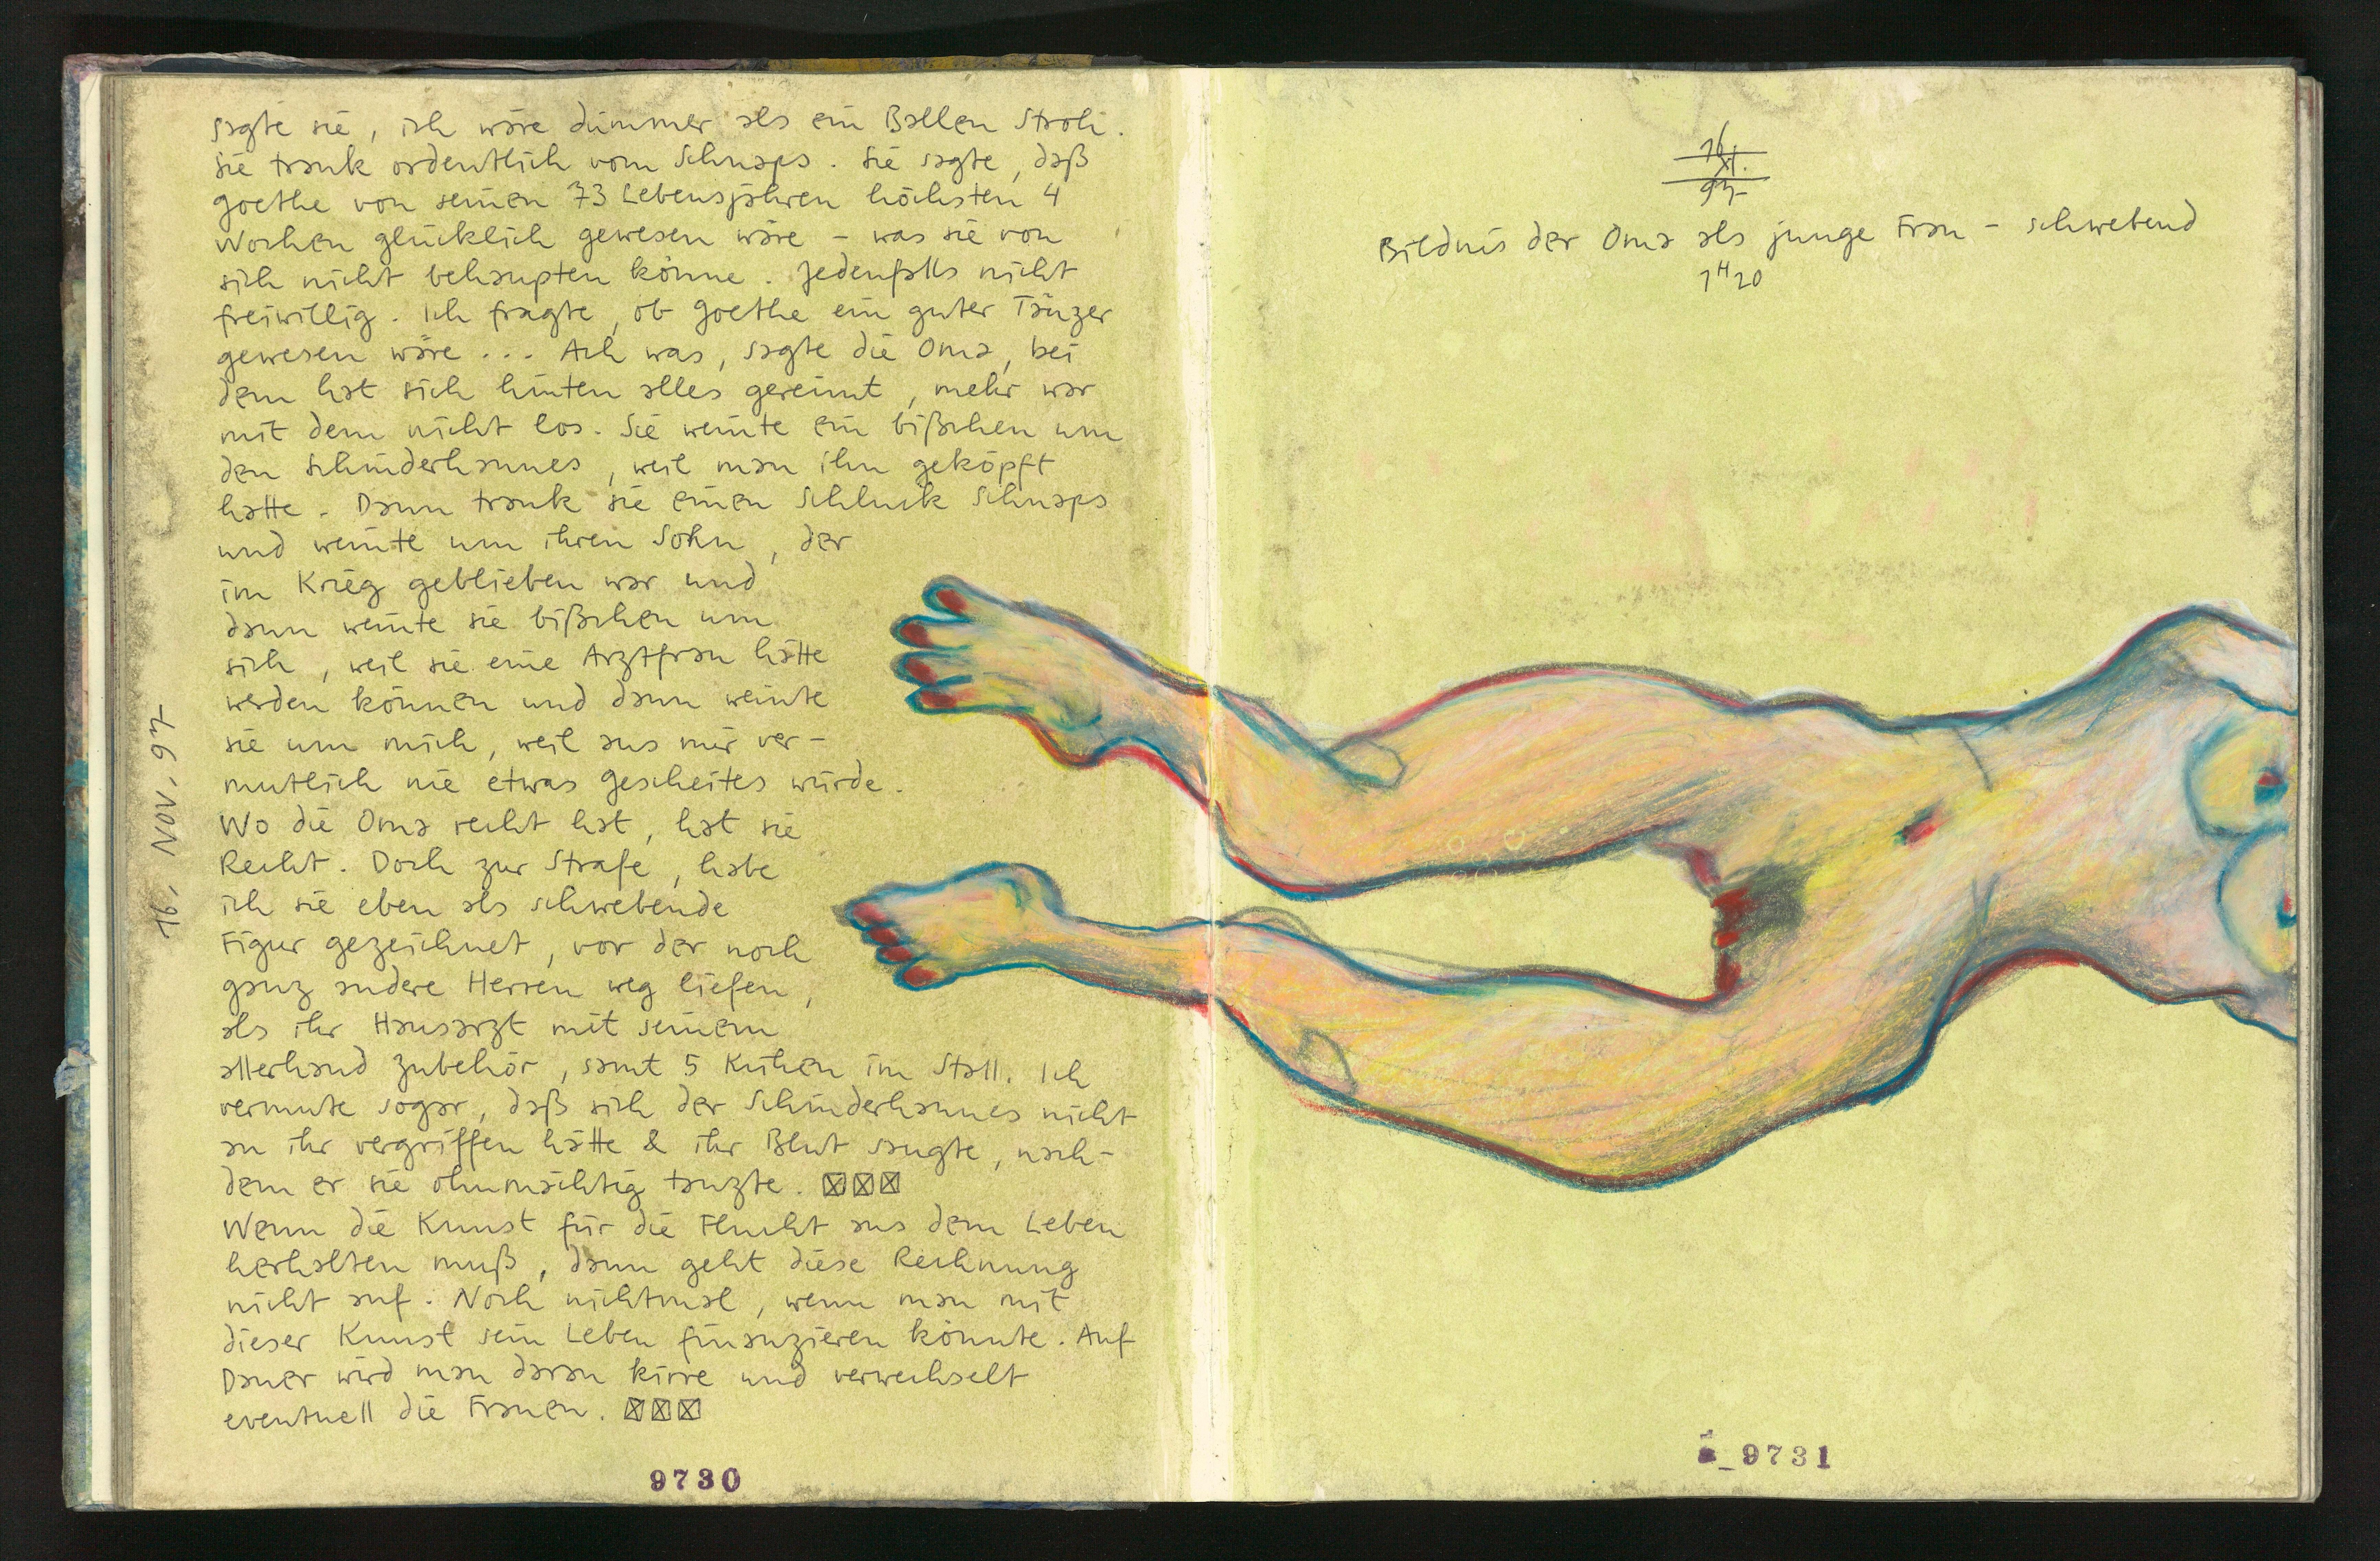 sagte sie, ich wäre dümmer als ein Ballen Stroh.
Sie trank ordentlich vom Schnaps. Sie sagte, daß
Goethe von seinen 73 Lebensjahren höchsten 4
Wochen glücklich gewesen wäre – was sie von
sich nicht behaupten könne. Jedenfalls nicht
freiwillig. Ich fragte, ob Goethe ein guter Tänzer
gewesen wäre... Ach was, sagte die Oma, bei
dem hat sich hinten alles gereimt, mehr war
mit dem nicht los. Sie weinte ein bißchen um
den Schinderhannes, weil man ihn geköpft
hatte. Dann trank sie einen Schluck Schnaps
und weinte um ihren Sohn, der
im Krieg geblieben war und
dann weinte sie bißchen um
sich, weil sie eine Arztfrau hätte
werden können und dann weinte
sie um mich, weil aus mir ver-
mutlich nie etwas Gescheites würde.
Wo die Oma recht hat, hat sie
Recht. Doch zur Strafe, habe
ich sie eben als schwebende
Figur gezeichnet, vor der noch
ganz andere Herren weg liefen,
als ihr Hausarzt mit seinem
allerhand Zubehör, samt 5 Kühen im Stall. Ich
vermute sogar, daß sich der Schinderhannes nicht
an ihr vergriffen hätte & ihr Blut saugte, nach-
dem er sie ohnmächtig tanzte. ☒☒☒
Wenn die Kunst für die Flucht aus dem Leben
herhalten muß, dann geht diese Rechnung
nicht auf. Noch nichtmal, wenn man mit
dieser Kunst sein Leben finanzieren könnte. Auf
Dauer wird man daran kirre und verwechselt
eventuell die Frauen. ☒☒☒
16. NOV. 97
9730
16
XI.
97
Bildnis der Oma als junge Frau – schwebend
1H20
9731